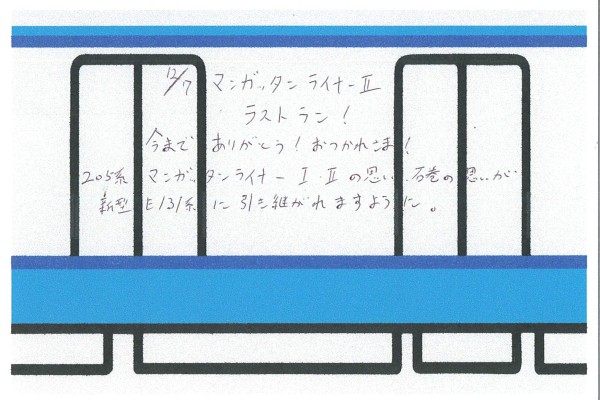 12/7 マンガッタンライナーⅡ
ラストラン!
今までありがとう!おつかれさま!
205系 マンガッタンライナーⅠ・Ⅱの思い、石巻の思いが
新型E131系に引き継がれますように。